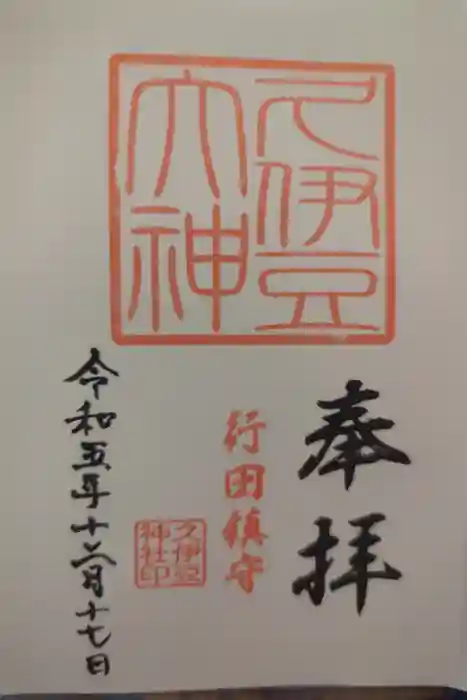 久伊豆
大神
奉拝
行田鎮守
久伊豆
神社印
令和五年十二月十七日